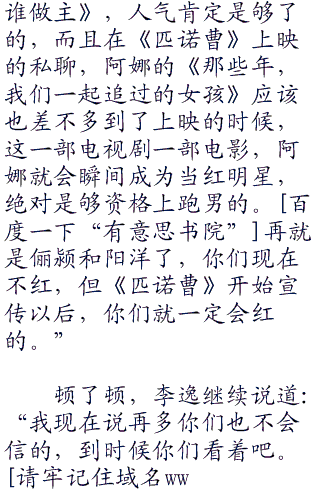 谁做主》，人气肯定是够了
的，而且在《匹诺曹》上映
的私聊，阿娜的《那些年，
我们一起追过的女孩》应该
也差不多到了上映的时候，
这一部电视剧一部电影，阿
娜就会瞬间成为当红明星，
绝对是够资格上跑男的。[百
度一下“有意思书院”]再就
是俪颍和阳洋了，你们现在
不红，但《匹诺曹》开始宣
传以后，你们就一定会红
的。”
顿了顿，李逸继续说道：
“我现在说再多你们也不会
信的，到时候你们看着吧。
[请牢记住域名ww